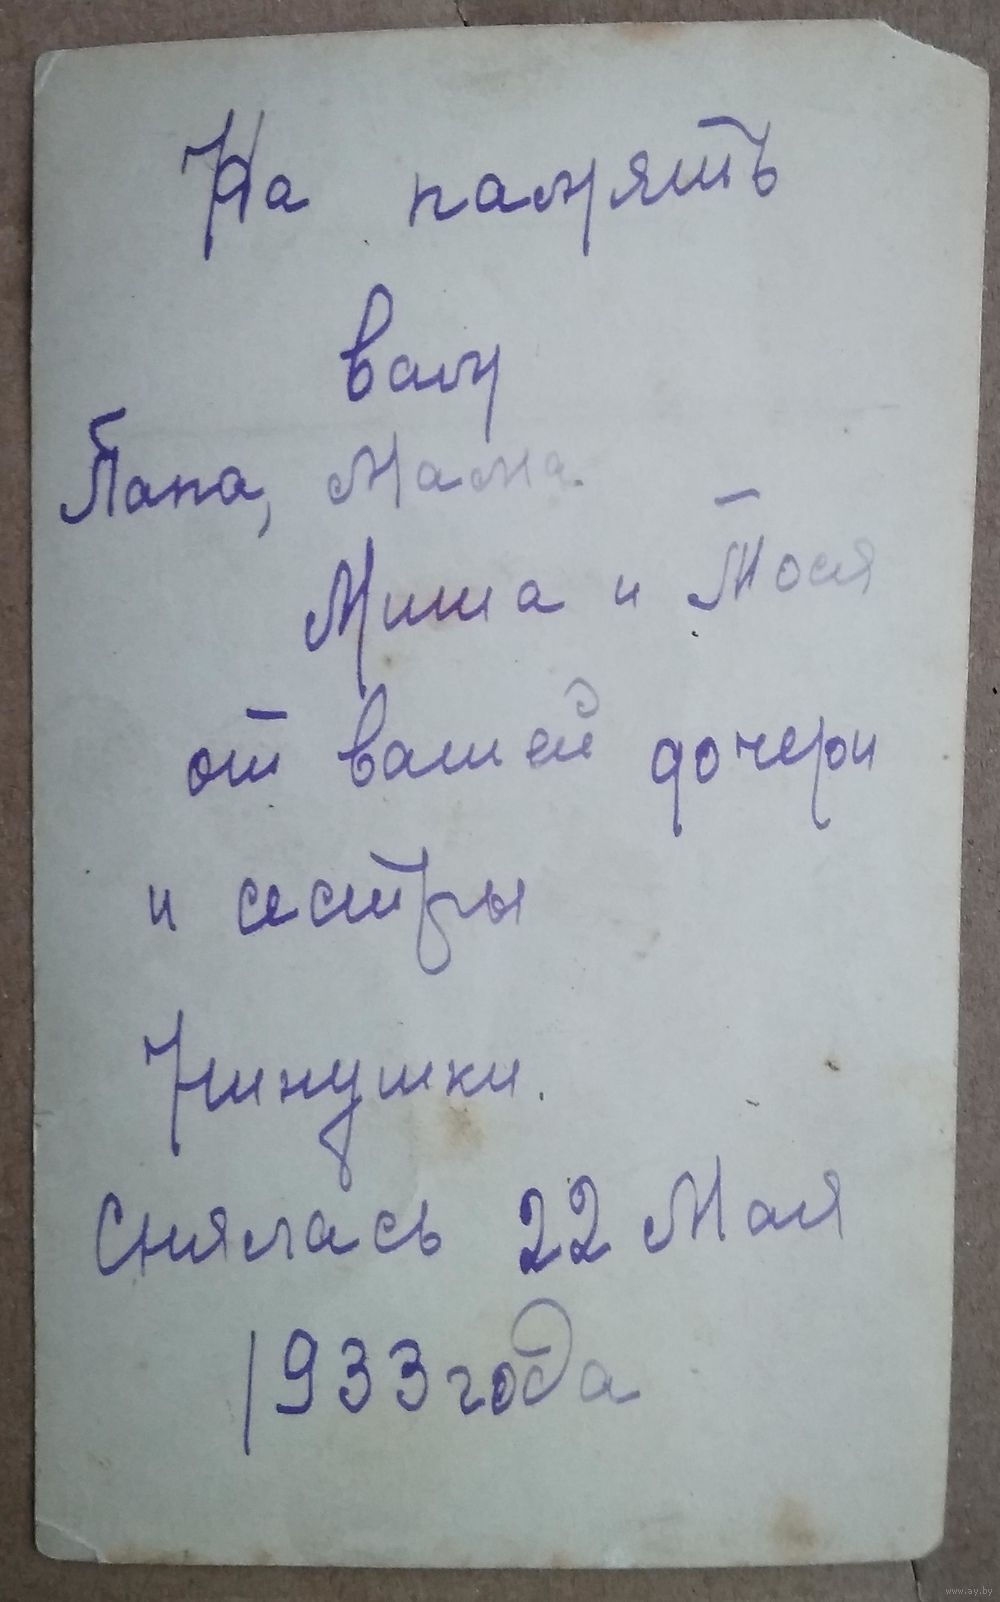 На память
вам
Папа, Мама
Миша и Тося
от вашей дочери
и сестры
Нинушки.
Снялась 22 Мая
1933 года
www.ay.by